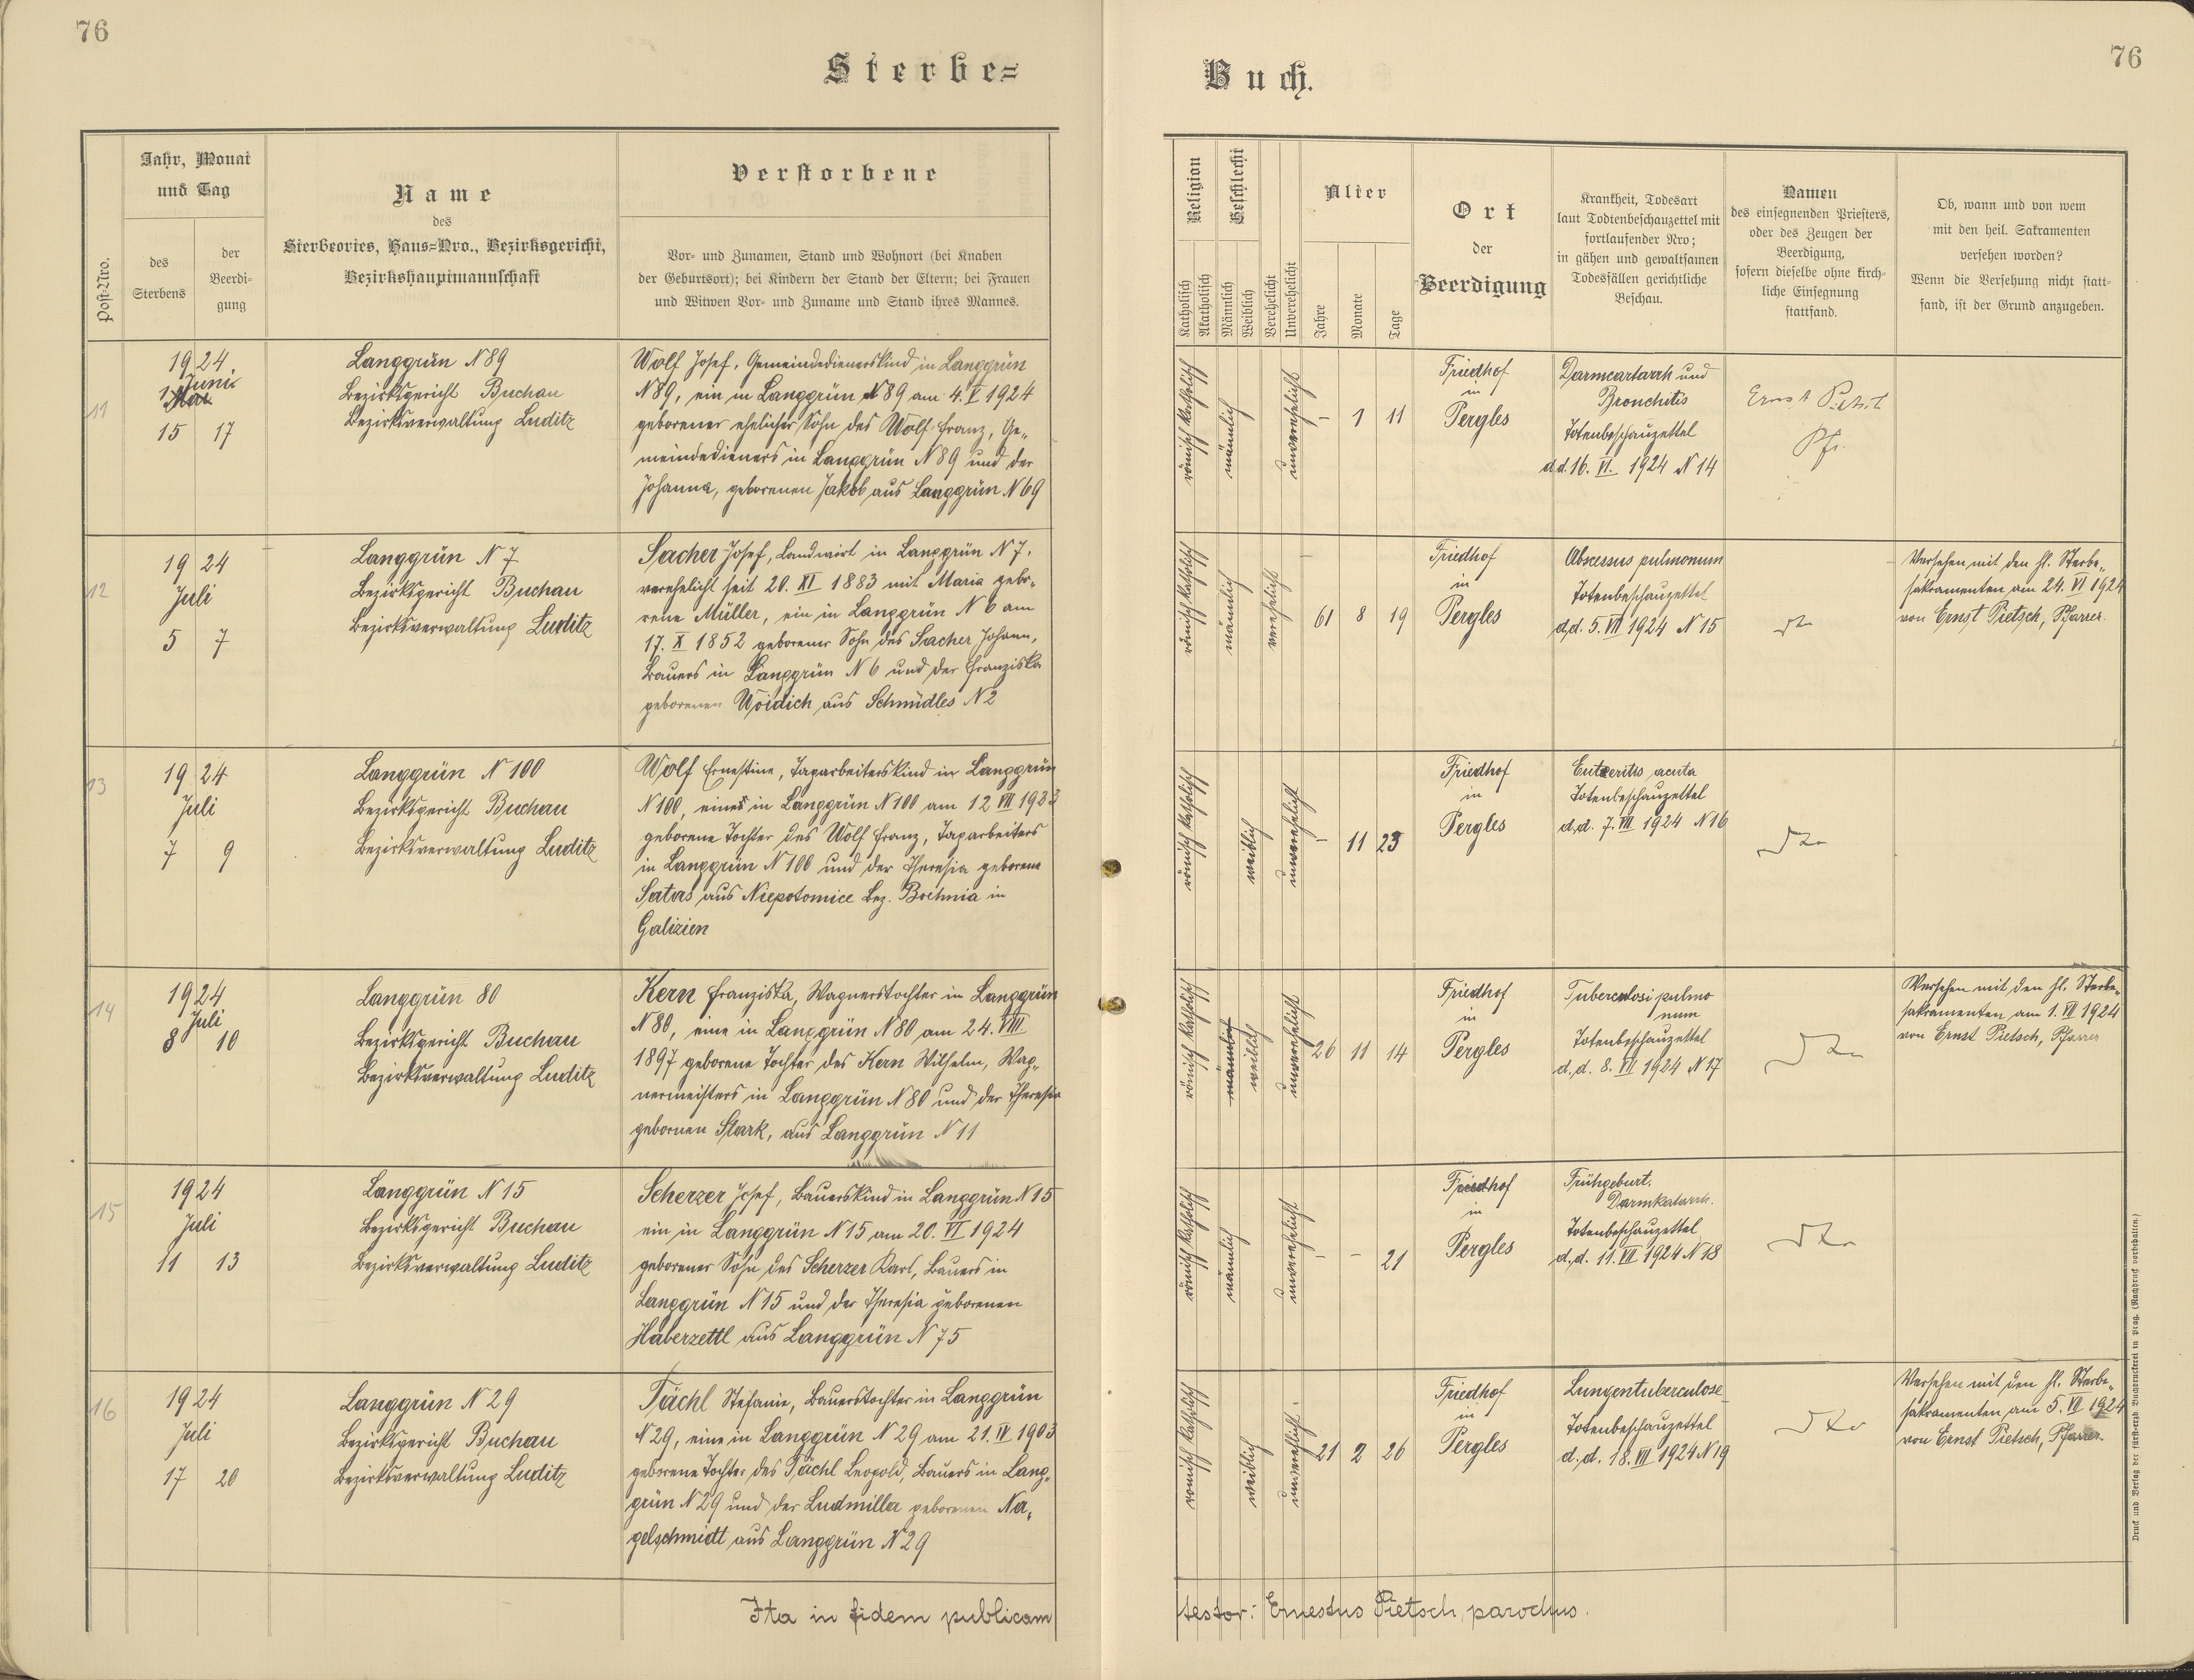 76
Sterbe=
Jahr, Monat
und Tag
des
Sterbens
der
Beerdi-
gung
Post-Nro.
Name
des
Sterbeortes, Haus=Nro., Bezirksgericht,
Bezirkshauptmannschaft
Verstorbene
Vor- und Zunamen, Stand und Wohnort (bei Knaben
der Geburtsort); bei Kindern der Stand der Eltern; bei Frauen
und Witwen Vor- und Zuname und Stand ihres Mannes.
11
1924
Juni
Mai
15 17
Langgrün N 89
Bezirksgericht Buchau
Bezirksverwaltung Luditz
Wolf Josef, Gemeindedienerskind in Langgrün
N 89, ein in Langgrün N 89 am 4. V 1924
geborener ehelicher Sohn des Wolf Franz, Ge„
meindedieners in Langgrün N 89 und der
Johanna, geborenen Jakob aus Langgrün N 69
12
1924
Juli
5 7
Langgrün N 7
Bezirksgericht Buchau
Bezirksverwaltung Luditz
Sacher Josef, Landwirt in Langgrün N 7,
verehelicht seit 20. XI 1883 mit Maria gebo„
rene Müller, ein in Langgrün N 6 am
17. X 1852 geborener Sohn des Sacher Johann,
Bauers in Langgrün N 6 und der Franziska
geborenen Woidich aus Schmüdles N 2
13
1924
Juli
7 9
Langgrün N 100
Bezirksgericht Buchau
Bezirksverwaltung Luditz
Wolf Ernestine, Tagarbeiterskind in Langgrün
N 100, eine in Langgrün N 100 am 12 VII 1923
geborene Tochter des Wolf Franz, Tagarbeiters
in Langgrün N 100 und der Theresia geborene
Satas aus Niepotomice Bez. Bochnia in
Galizien
14
1924
Juli
8 10
Langgrün 80
Bezirksgericht Buchau
Bezirksverwaltung Luditz
Kern Franziska, Wagnerstochter in Langgrün
N 80, eine in Langgrün N 80 am 24. VIII
1897 geborene Tochter des Kern Wilhelm, Wag„
nermeisters in Langgrün N 80 und der Theresia
gebornen Stark, aus Langgrün N 11
15
1924
Juli
11 13
Langgrün N 15
Bezirksgericht Buchau
Bezirksverwaltung Luditz
Scherzer Josef, Bauerskind in Langgrün N 15
ein in Langgrün N 15 am 20. VI 1924
geborener Sohn des Scherzer Karl, Bauers in
Langgrün N 15 und der Theresia geborenen
Haberzettl aus Langgrün N 75
16
1924
Juli
17 20
Langgrün N 29
Bezirksgericht Buchau
Bezirksverwaltung Luditz
Tächl Stefanie, Bauerstochter in Langgrün
N 29, eine in Langgrün N 29 am 21. IV 1903
geborene Tochter des Tächl Leopold, Bauers in Lang„
grün N 29 und der Ludmilla geborenen Na„
gelschmidt aus Langgrün N 29
Ita in fidem publicam
76
Buch.
Religion
Katholisch
Akatholisch
Geschlecht
Männlich
Weiblich
Verehelicht
Unverehelicht
Alter
Jahre
Monate
Tage
Ort
der
Beerdigung
Krankheit, Todesart
laut Todtenbeschauzettel mit
fortlaufender Nro;
in gähen und gewaltsamen
Todesfällen gerichtliche
Beschau.
Namen
des einsegnenden Priesters,
oder des Zeugen der
Beerdigung,
sofern dieselbe ohne kirch-
liche Einsegnung
stattfand.
Ob, wann und von wem
mit den heil. Sakramenten
versehen worden?
Wenn die Versehung nicht statt-
fand, ist der Grund anzugeben.
römisch katholisch
männlich
unverehelicht
– 1 11
Friedhof
in
Pergles
Darmcartarrh und
Bronchitis
Totenbeschauzettel
d.d. 16. VI. 1924 N 14
Ernst Pietsch
Pfr.
römisch katholisch
männlich
verehelicht
61 8 19
Friedhof
in
Pergles
Abscessus pulmonum
Totenbeschauzettel
d.d. 5. VII 1924 N 15
Versehen mit den hl. Sterbe„
sakramenten am 24. VI 1924
von Ernst Pietsch, Pfarrer.
römisch katholisch
weiblich
unverehelicht
– 11 23
Friedhof
in
Pergles
Enteritis acuta
Totenbeschauzettel
d.d. 7. VII 1924 N 16
römisch katholisch
männlich
weiblich
unverehelicht
26 11 14
Friedhof
in
Pergles
Tuberculosi pulmo
num
Totenbeschauzettel
d.d. 8. VII 1924 N 17
Versehen mit den hl. Sterbe„
sakramenten am 1. VII 1924
von Ernst Pietsch, Pfarrer
römisch katholisch
männlich
unverehelicht
– – 21
Friedhof
in
Pergles
Frühgeburt.
Darmkatarrh.
Totenbeschauzettel
d.d. 11. VII 1924 N 18
römisch katholisch
weiblich
unverehlicht.
21 2 26
Friedhof
in
Pergles
Lungentuberculose
Totenbeschauzettel
d.d. 18. VII 1924 N 19
Versehen mit den hl. Sterbe„
sakramenten am 5. VII 1924
von Ernst Pietsch, Pfarrer.
testor: Ernestus Pietsch, parochus.
Druck und Verlag der fürsterzb. Buchdruckerei in Prag. (Nachdruck vorbehalten.)